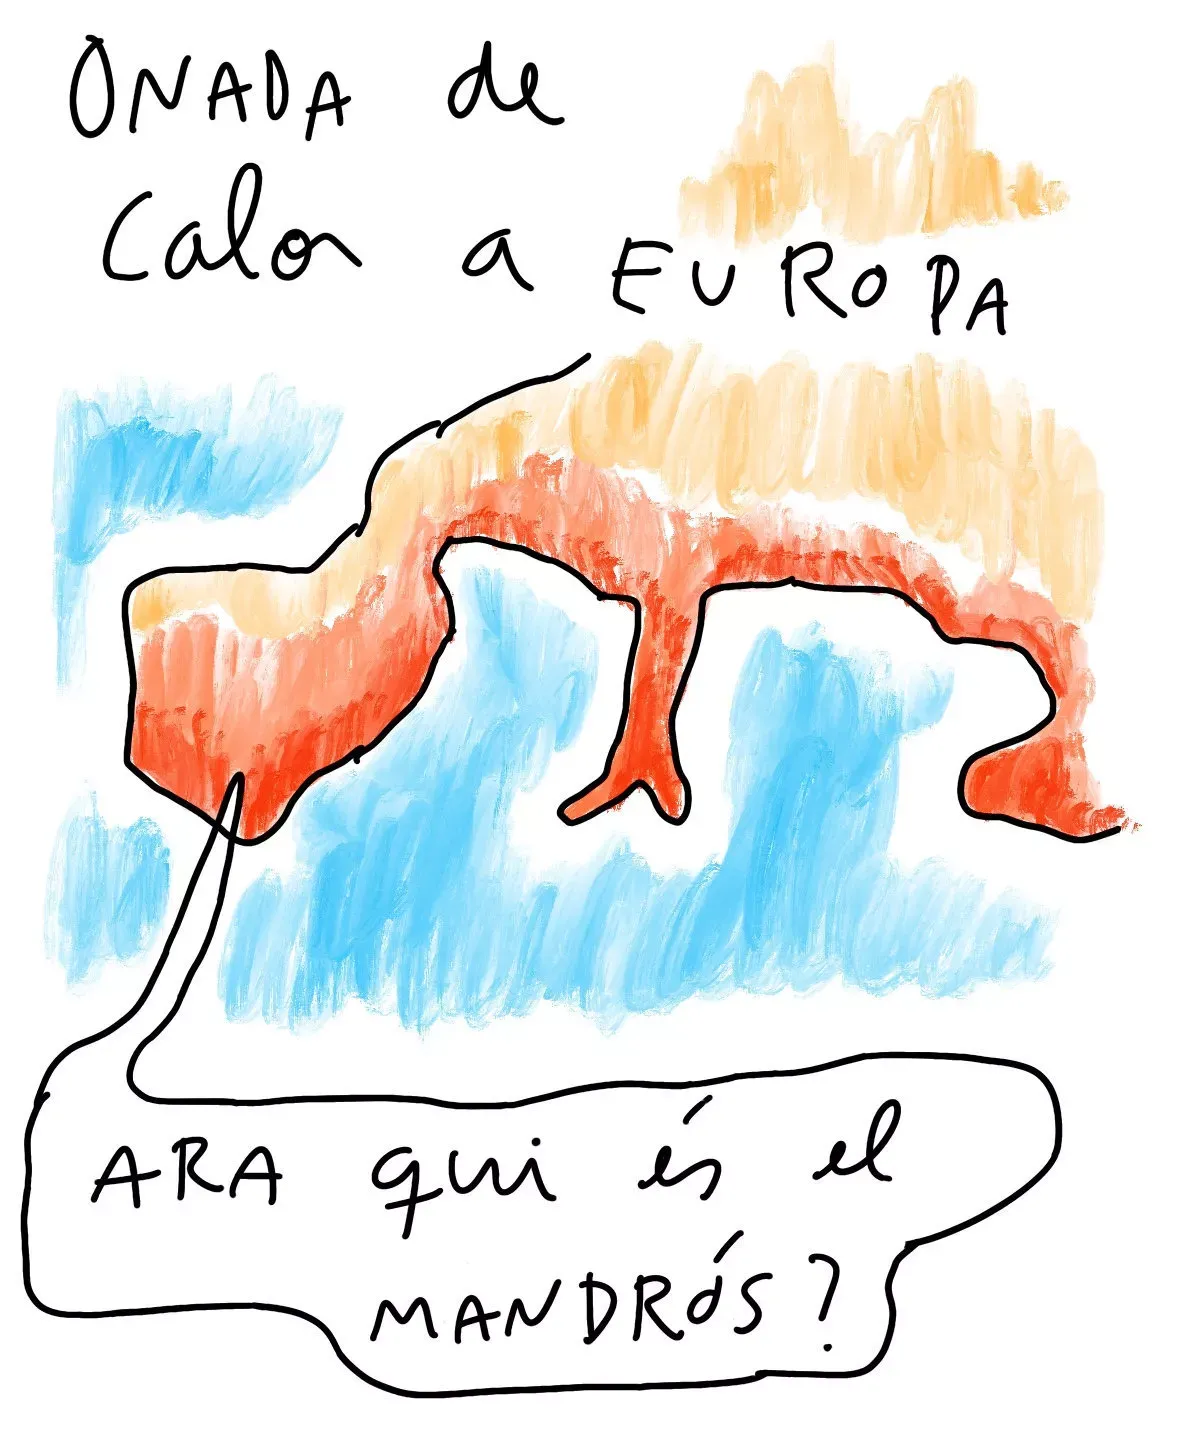 ONADA de
Calor a EUROPA
ARA qui és el
MANDRÓS?